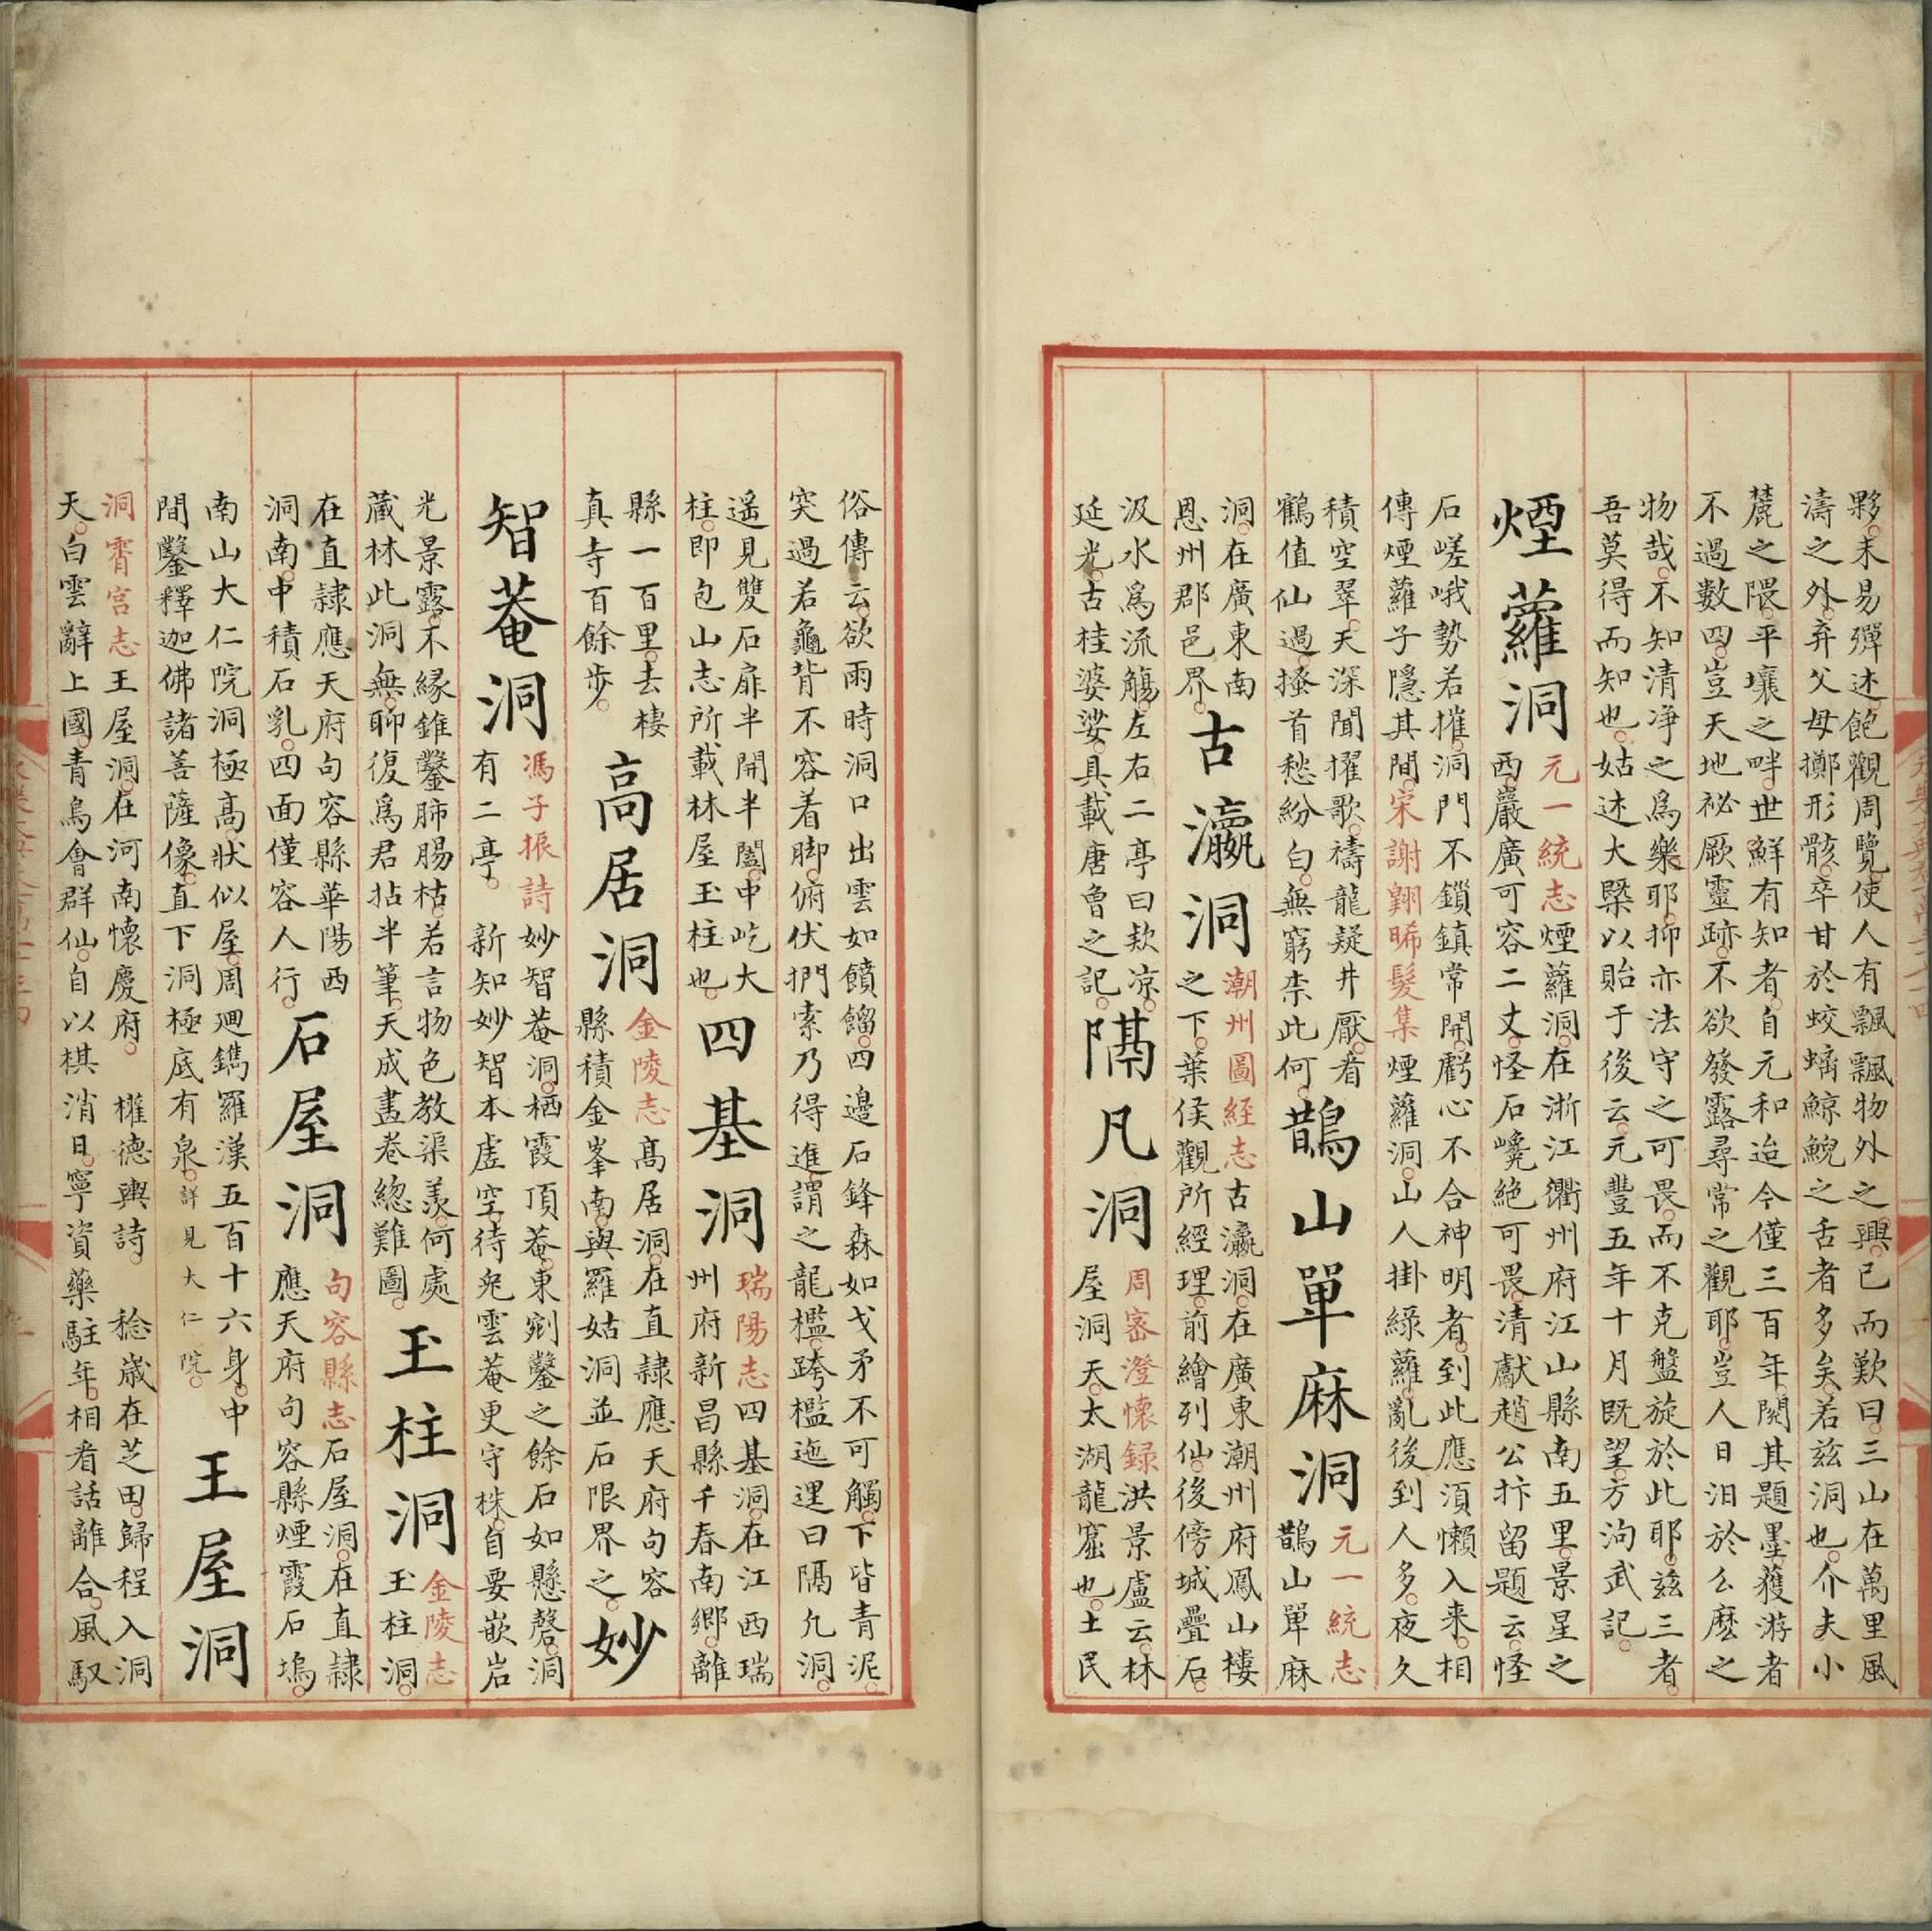 夥未易殫述飽觀周覽使人有飄飄物外之興已而歎曰三山在萬里風
濤之外弃父母擲形骸卒甘於蛟螭鯨鯢之舌者多矣若茲洞也介夫小
麓之隈平壤之畔世鮮有知者自元和迨今僅三百年閱其題墨獲游者
不過數四豈天地祕厥靈跡不欲發露尋常之觀耶豈人日汨於么麽之
物哉不知清净之爲樂耶抑亦法守之可畏而不克盤旋於此耶茲三者
吾莫得而知也姑述大槩以貽于後云元豐五年十月既望方洵武記
煙蘿洞
元一統志煙蘿洞在浙江衢州府江山縣南五里景星之
西巖廣可容二丈怪石巉絶可畏清獻趙公抃留題云怪
石嵯峨勢若摧洞門不鎖鎮常開虧心不合神明者到此應須懶入来相
傳煙蘿子隱其間宋謝翱晞髮集煙蘿洞山人掛綠蘿亂後到人多夜久
積空翠天深聞擢歌禱龍疑井厭看
鶴值仙過搔首愁紛白無窮柰此何
鵲山單麻洞
元一統志
鵲山單麻
洞在廣東南
恩州郡邑界
古瀛洞
潮州圖經志古瀛洞在廣東潮州府鳳山樓
之下葉侯觀所經理前繪列仙後傍城疊石
汲水爲流觴左右二亭曰欵凉
延光古桂婆娑具載唐魯之記
隔凡洞
周密澄懷録洪景盧云林
屋洞天太湖龍窟也土民
俗傳云欲雨時洞口出雲如饙餾四邊石鋒森如戈矛不可觸下皆青泥
突過若龜背不容着脚俯伏捫索乃得進謂之龍檻跨檻迤邐曰隔凢洞
遥見雙石扉半開半闔中屹大
柱即包山志所載林屋玉柱也
四基洞
瑞陽志四基洞在江西瑞
州府新昌縣千春南鄉離
縣一百里去棲
真寺百餘步
高居洞
金陵志髙居洞在直隷應天府句容
縣積金峯南與羅姑洞並石限界之
妙
智菴洞
馮子振詩妙智菴洞栖霞頂菴東剜鑿之餘石如懸磬洞
有二亭新知妙智本虗空待兠雲菴更守株自要嵌岩
光景露不緣錐鑿肺腸枯若言物色教渠羡何處
藏林此洞無聊復爲君拈半筆天成畫卷總難圖
玉柱洞
金陵志
玉柱洞
在直隷應天府句容縣華陽西
洞南中積石乳四面僅容人行
石屋洞
句容縣志石屋洞在直隷
應天府句容縣煙霞石塢
南山大仁院洞極髙狀似屋周廻鐫羅漢五百十六身中
間鑿釋迦佛諸善薩像直下洞極底有泉詳見大仁院
王屋洞
洞霄宫志王屋洞在河南懷慶府權德輿詩稔歲在芝田歸程入洞
天白雲辭上國青鳥會群仙自以棋消日寧資藥駐年相看話離合風馭